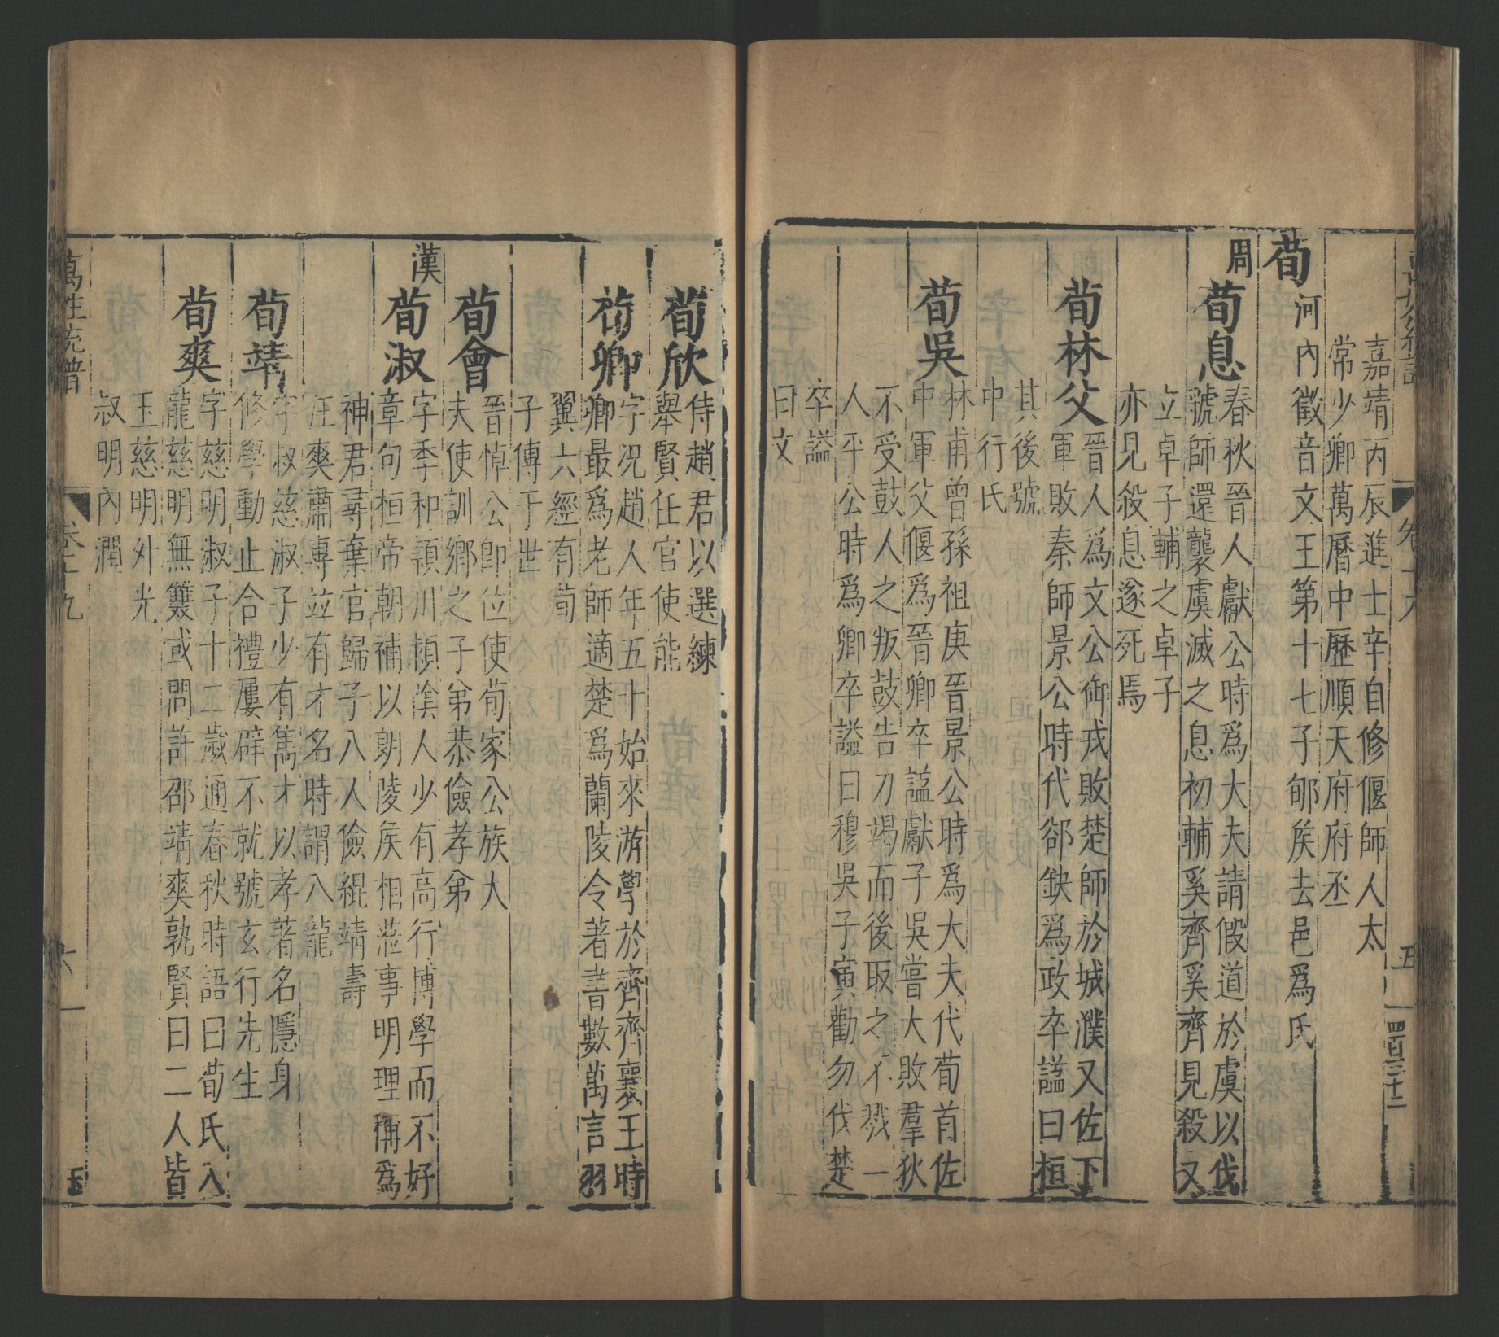 嘉靖丙辰進士辛自修偃師人太
常少卿萬曆中歷順天府府丞
荀 河內徵音文王第十七子郇侯去邑爲氏
周
荀息 春秋晉人獻公時爲大夫請假道於虞以伐
虢師還襲虞滅之息初輔奚齊奚齊見殺又
立卓子輔之卓子
亦見殺息遂死焉
荀林父 晉人爲文公御戎敗楚師於城濮又佐下
軍敗秦師景公時代郤缺爲政卒謚曰桓
其後號
中行氏
荀吳 林甫曾孫祖庚晉景公時爲大夫代荀首佐
中軍父偃爲晉卿卒謚獻子吳嘗大敗羣狄
不受鼓人之叛鼓告力竭而後取之不戮一
人平公時爲卿卒謚曰穆吳子寅勸勿伐楚
卒謚
曰文
荀欣 侍趙君以選練
舉賢任官使能
荀卿 字況趙人年五十始來游學於齊齊襄王時
卿最爲老師適楚爲蘭陵令著書數萬言羽
翼六經有荀
子傳于世
荀會 晉悼公卽位使荀家公族大
夫使訓鄉之子弟恭儉孝弟
漢
荀淑 字季和潁川潁陰人少有高行博學而不好
章句桓帝朝補以朗陵侯相蒞事明理稱爲
神君尋棄官歸子八人儉緄靖燾
汪爽肅專竝有才名時謂八龍
荀靖 字叔慈淑子少有雋才以孝著名隱身
修學動止合禮屢辟不就號玄行先生
荀爽 字慈明淑子十二歲通春秋時語曰荀氏八
龍慈明無雙或問許邵靖爽孰賢曰二人皆
玉慈明外光
叔明內潤
萬姓统譜
卷十九
六